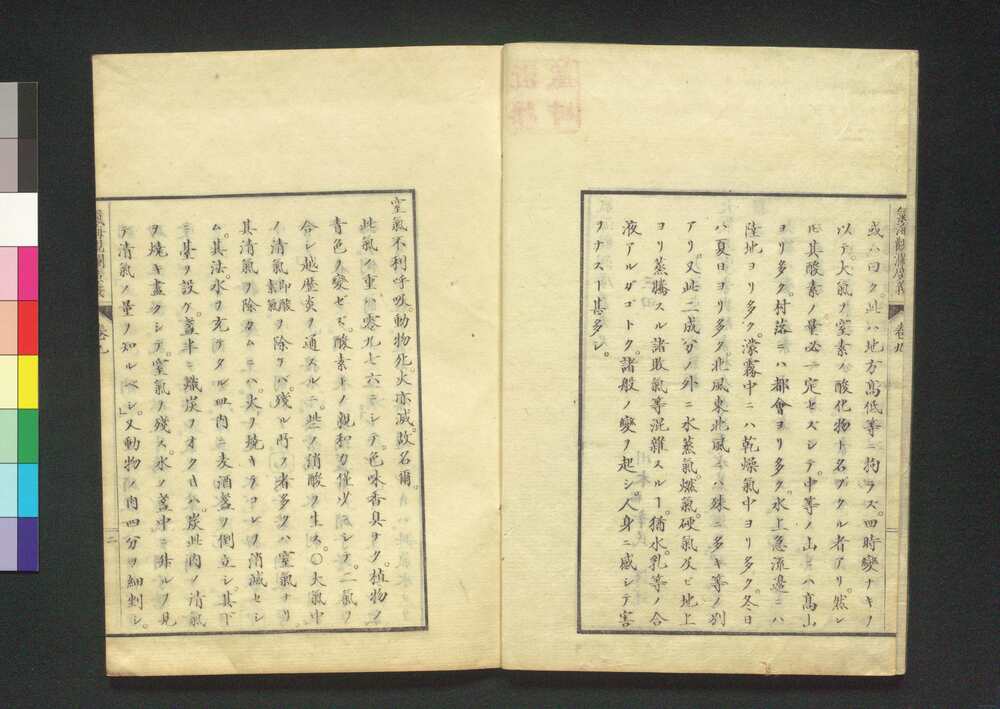 氣海觀瀾廣義 卷九
或ハ曰ク。此ハ地方高低等ニ拘ラズ。四時變ナキノ
以テ。大氣ヲ窒素ノ酸化物ト名ヅクル者アリ。然レ
ドモ其酸素ノ量必一定セズシテ。中等ノ山ニハ高山
ヨリ多ク。村落ニハ都會ヨリ多ク。水上急流邊ニハ
陸地ヨリ多ク。濛霧中ニハ乾燥氣中ヨリ多ク。冬日
ハ夏日ヨリ多ク。北風東北風ニハ殊ニ多キ等ノ別
アリ。又此二成分ノ外ニ水蒸氣。燃氣。硬氣及ビ地上
ヨリ蒸騰スル諸敗氣等混雜スルー。猶水。乳等ノ合
液アルガゴトク。諸般ノ變ヲ起シ。人身ニ感シテ害
ヲナスー甚多シ。
窒氣不利呼吸。動物死。火亦滅。故名爾。
此氣ノ重ハ零九七六ニシテ。色味香臭ナク。植物ノ
青色ヲ變ゼズ。酸素トノ親和力僅少ニシテ。二氣ヲ
合シ越歴炎ヲ通スルニ。些ノ消酸ヲ生ス。〇大氣中
ノ清氣即酸素氣ヲ除ケバ。殘ル所ノ者多クハ窒氣ナリ。
其清氣ヲ除クニハ。火ヲ燒キテコレヲ消滅セシ
ム。其法。水ヲ充テタル皿内ニ麦酒盞ヲ倒立シ。其下
ニ臺ヲ設ケ。蓋半ニ熾炭ヲオクトキハ。炭此内ノ清氣
ヲ燒キ盡クシテ。窒氣ヲ殘ス。水ノ盞中ニ升ルヲ見
テ清氣ノ量ヲ知ルベシ。」又動物ノ肉四分ヲ細剉シ。
氣海觀瀾廣義 卷九 二